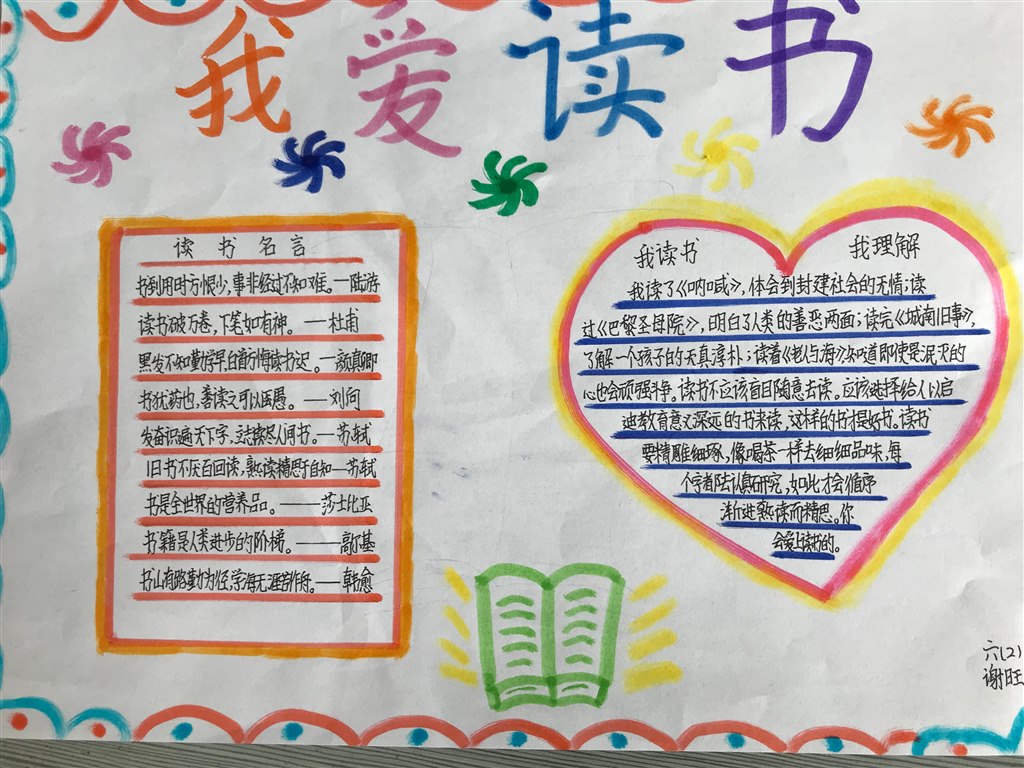 我爱读书
读书名言
书到用时方恨少,事非经过不知难。—陆游
读书破万卷,下笔如有神。—杜甫
黑发不知勤学早,白首方悔读书迟。—颜真卿
书犹药也,善读之可以医愚。—刘向
发奋识遍天下字,立志读尽人间书。—苏轼
旧书不厌百回读,熟读精思子自知—苏轼
书是全世界的营养品。——莎士比亚
书籍是人类进步的阶梯。——高尔基
书山有路勤为径,学海无涯苦作舟。—韩愈
我读书 我理解
我读了《呐喊》,体会到封建社会的无情;读
过《巴黎圣母院》,明白了人类的善恶两面;读完《城南旧事》,
了解一个孩子的天真淳朴;读着《老人与海》知道即使是泯灭的
心也会顽强斗争。读书不应该盲目随意去读。应该选择给人以启
迪教育意义深远的书来读,这样的书才是好书。读书
要精雕细琢,像喝茶一样去细细品味,每
个字都去认真研究,如此才会循序
渐进熟读而精思。你
会爱上读书的。
六(2)
谢旺